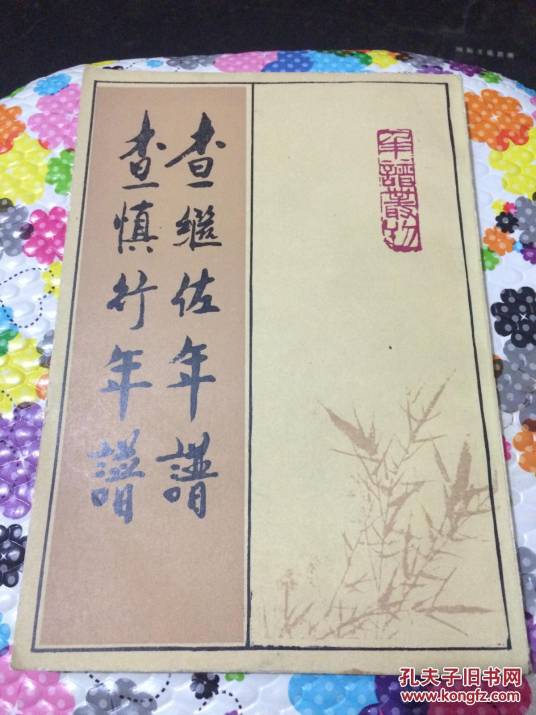 查继佐年谱
查慎行年谱
年譜叢刊
孔夫子旧书网
www.kongfz.com